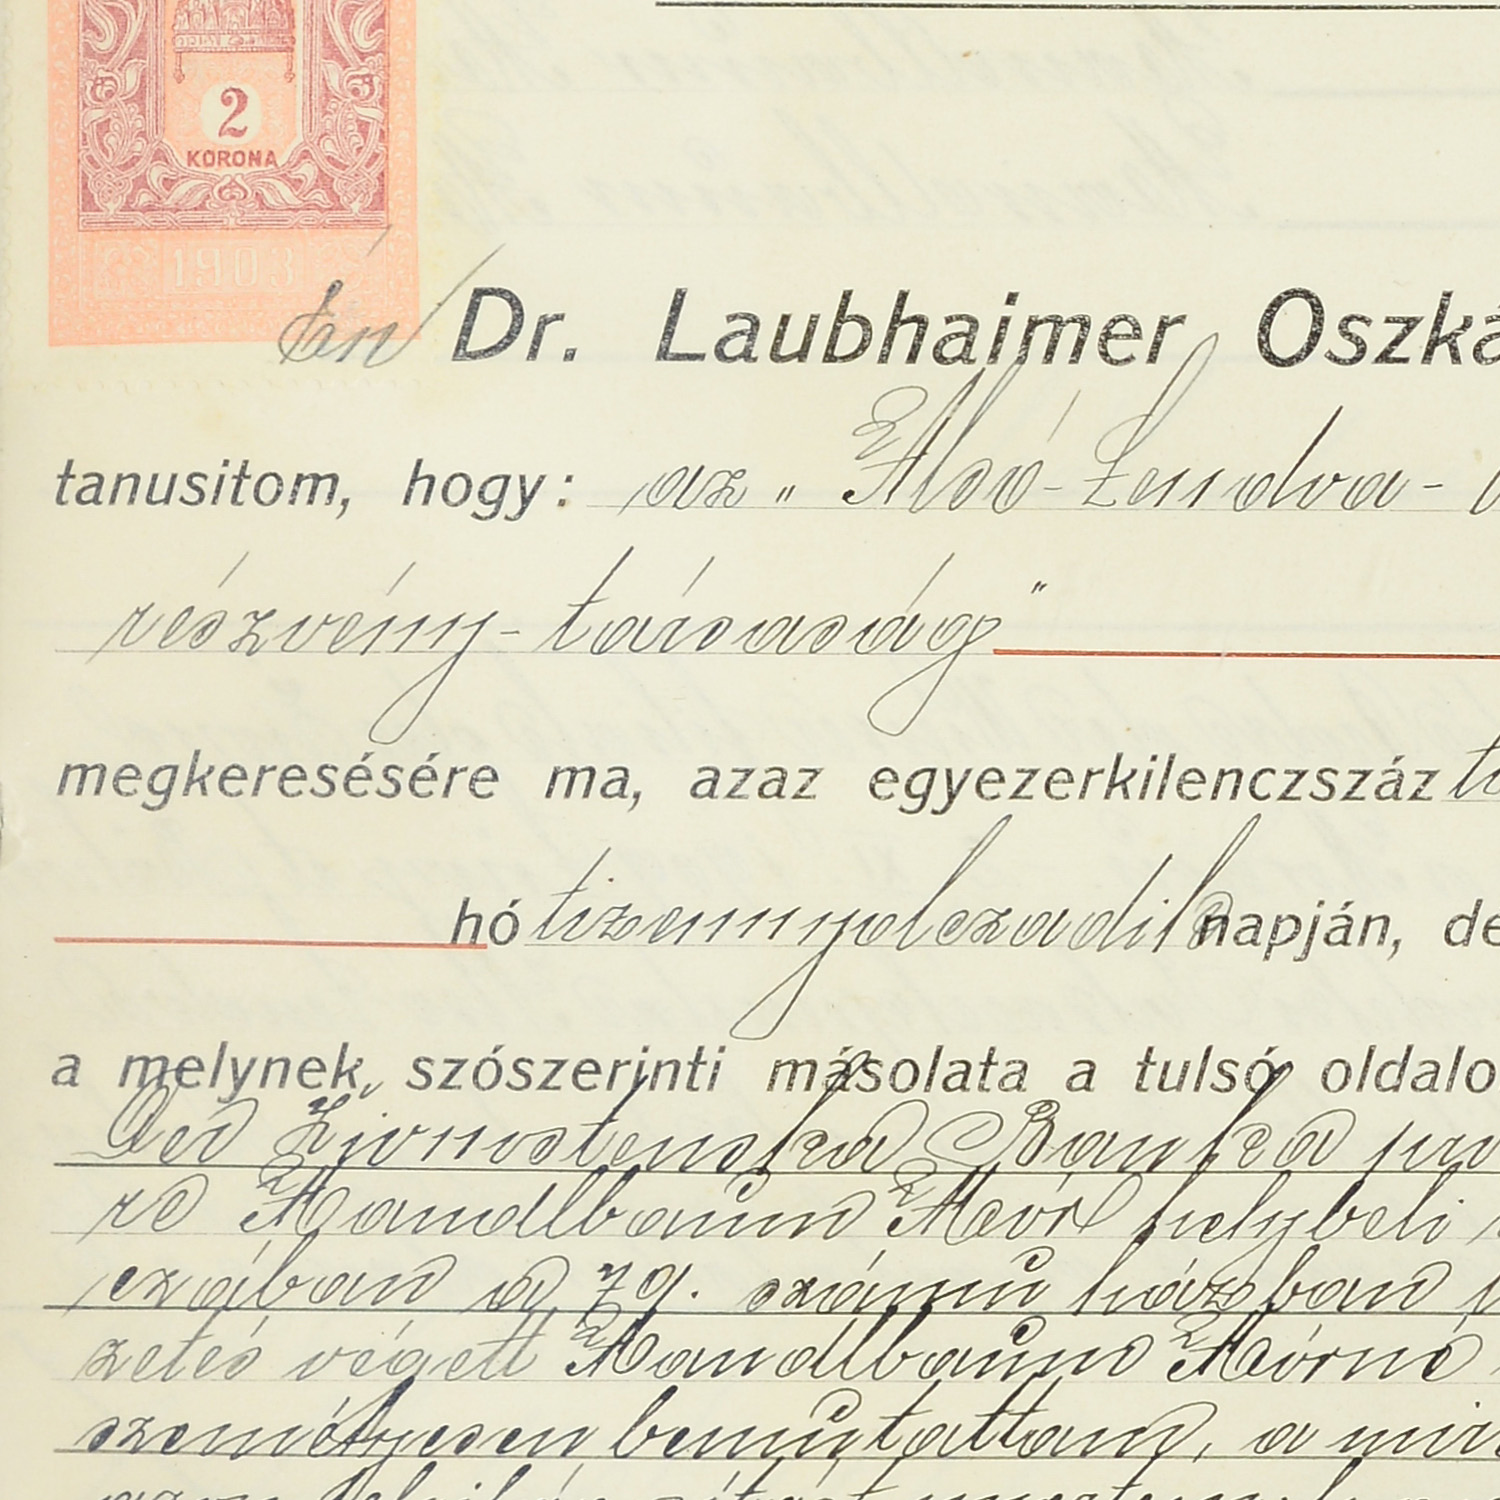 2
KORONA
1903
Én Dr. Laubhaimer Oszká
tanusitom, hogy: az „Alsó-Lendva-
részvény-társaság"
megkeresésére ma, azaz egyezerkilenczszáz
hó tizennyolczadik napján, de
a melynek, szószerinti másolata a tulsó oldalo
Ded Zivnostenska Banka
re Mandlbaum Mór helybeli
czában a 79. számu házban
zetés végett Mandlbaum Mórné
személyesen bemutattam, a mire